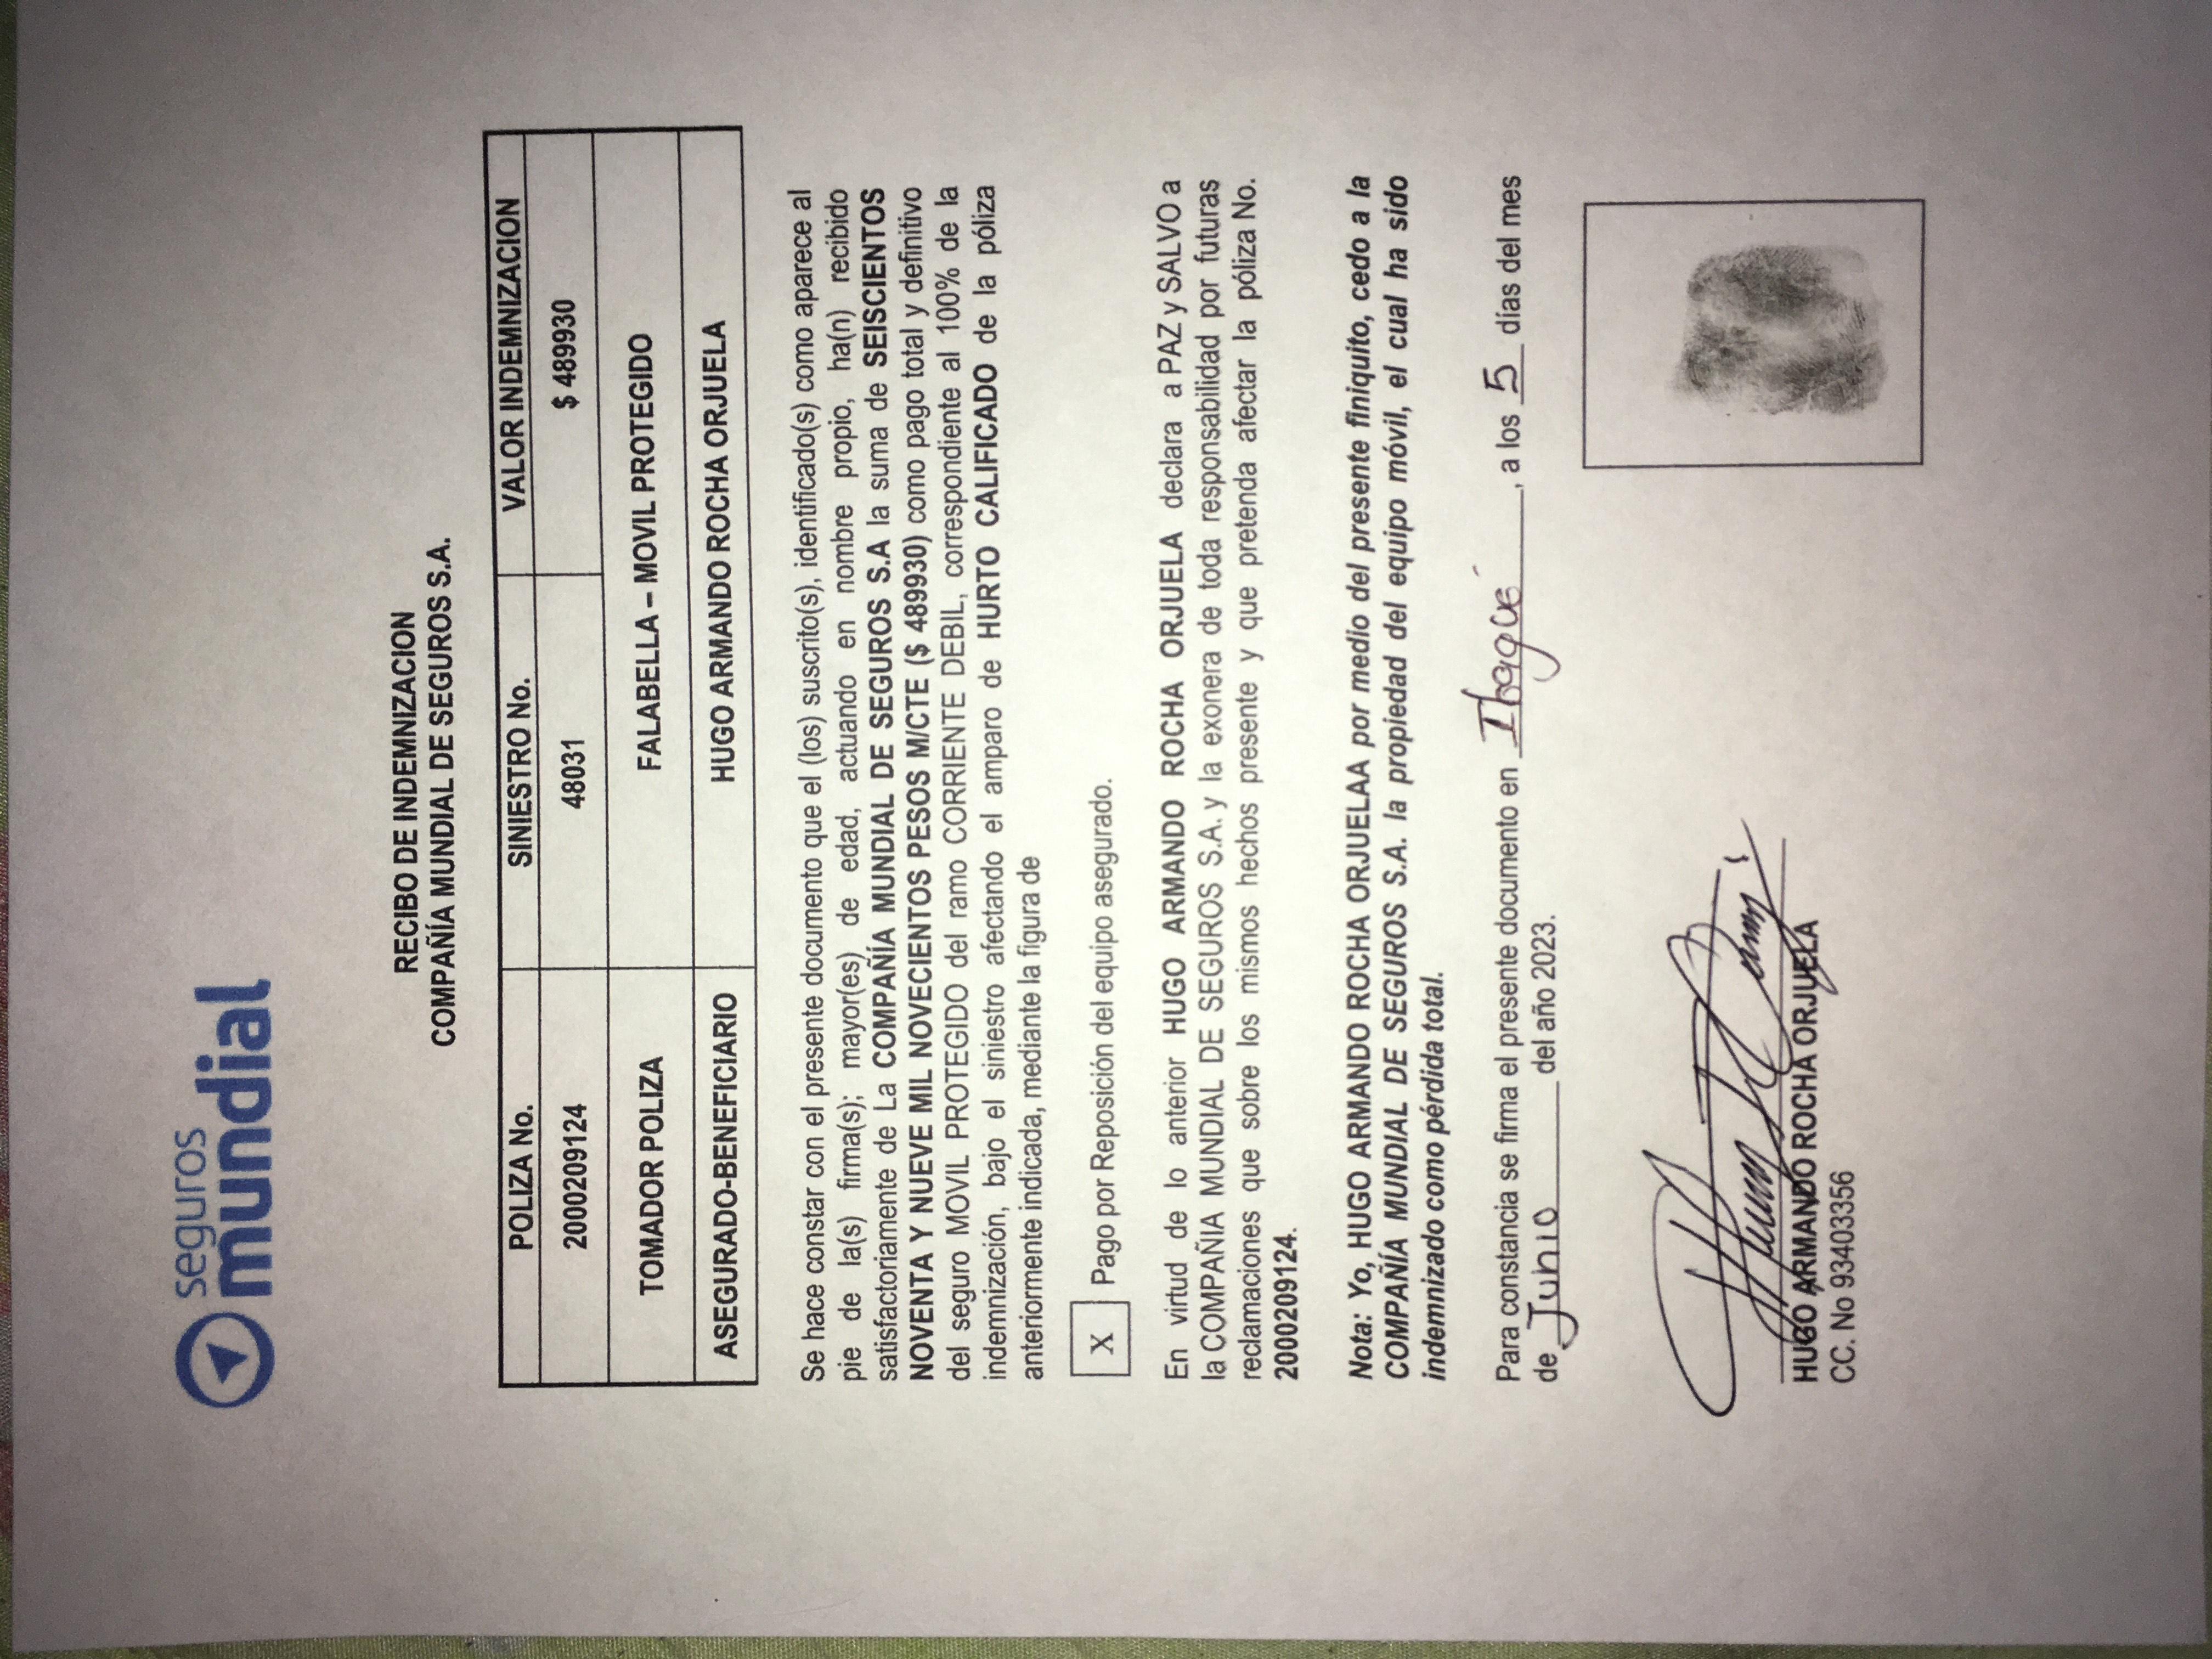 seguros
mundial
RECIBO DE INDEMNIZACION
COMPAÑÍA MUNDIAL DE SEGUROS S.A.
POLIZA No. SINIESTRO No. VALOR INDEMNIZACION
2000209124 48031 $ 489930
TOMADOR POLIZA FALABELLA – MOVIL PROTEGIDO
ASEGURADO-BENEFICIARIO HUGO ARMANDO ROCHA ORJUELA
Se hace constar con el presente documento que el (los) suscrito(s), identificado(s) como aparece al
pie de la(s) firma(s); mayor(es) de edad, actuando en nombre propio, ha(n) recibido
satisfactoriamente de La COMPAÑÍA MUNDIAL DE SEGUROS S.A la suma de SEISCIENTOS
NOVENTA Y NUEVE MIL NOVECIENTOS PESOS M/CTE ($ 489930) como pago total y definitivo
del seguro MOVIL PROTEGIDO del ramo CORRIENTE DEBIL, correspondiente al 100% de la
indemnización, bajo el siniestro afectando el amparo de HURTO CALIFICADO de la póliza
anteriormente indicada, mediante la figura de
X Pago por Reposición del equipo asegurado.
En virtud de lo anterior HUGO ARMANDO ROCHA ORJUELA declara a PAZ y SALVO a
la COMPAÑIA MUNDIAL DE SEGUROS S.A. y la exonera de toda responsabilidad por futuras
reclamaciones que sobre los mismos hechos presente y que pretenda afectar la póliza No.
2000209124.
Nota: Yo, HUGO ARMANDO ROCHA ORJUELAA por medio del presente finiquito, cedo a la
COMPAÑÍA MUNDIAL DE SEGUROS S.A. la propiedad del equipo móvil, el cual ha sido
indemnizado como pérdida total.
Para constancia se firma el presente documento en Ibagué, a los 5 días del mes
de Junio del año 2023.
HUGO ARMANDO ROCHA ORJUELA
CC. No 93403356